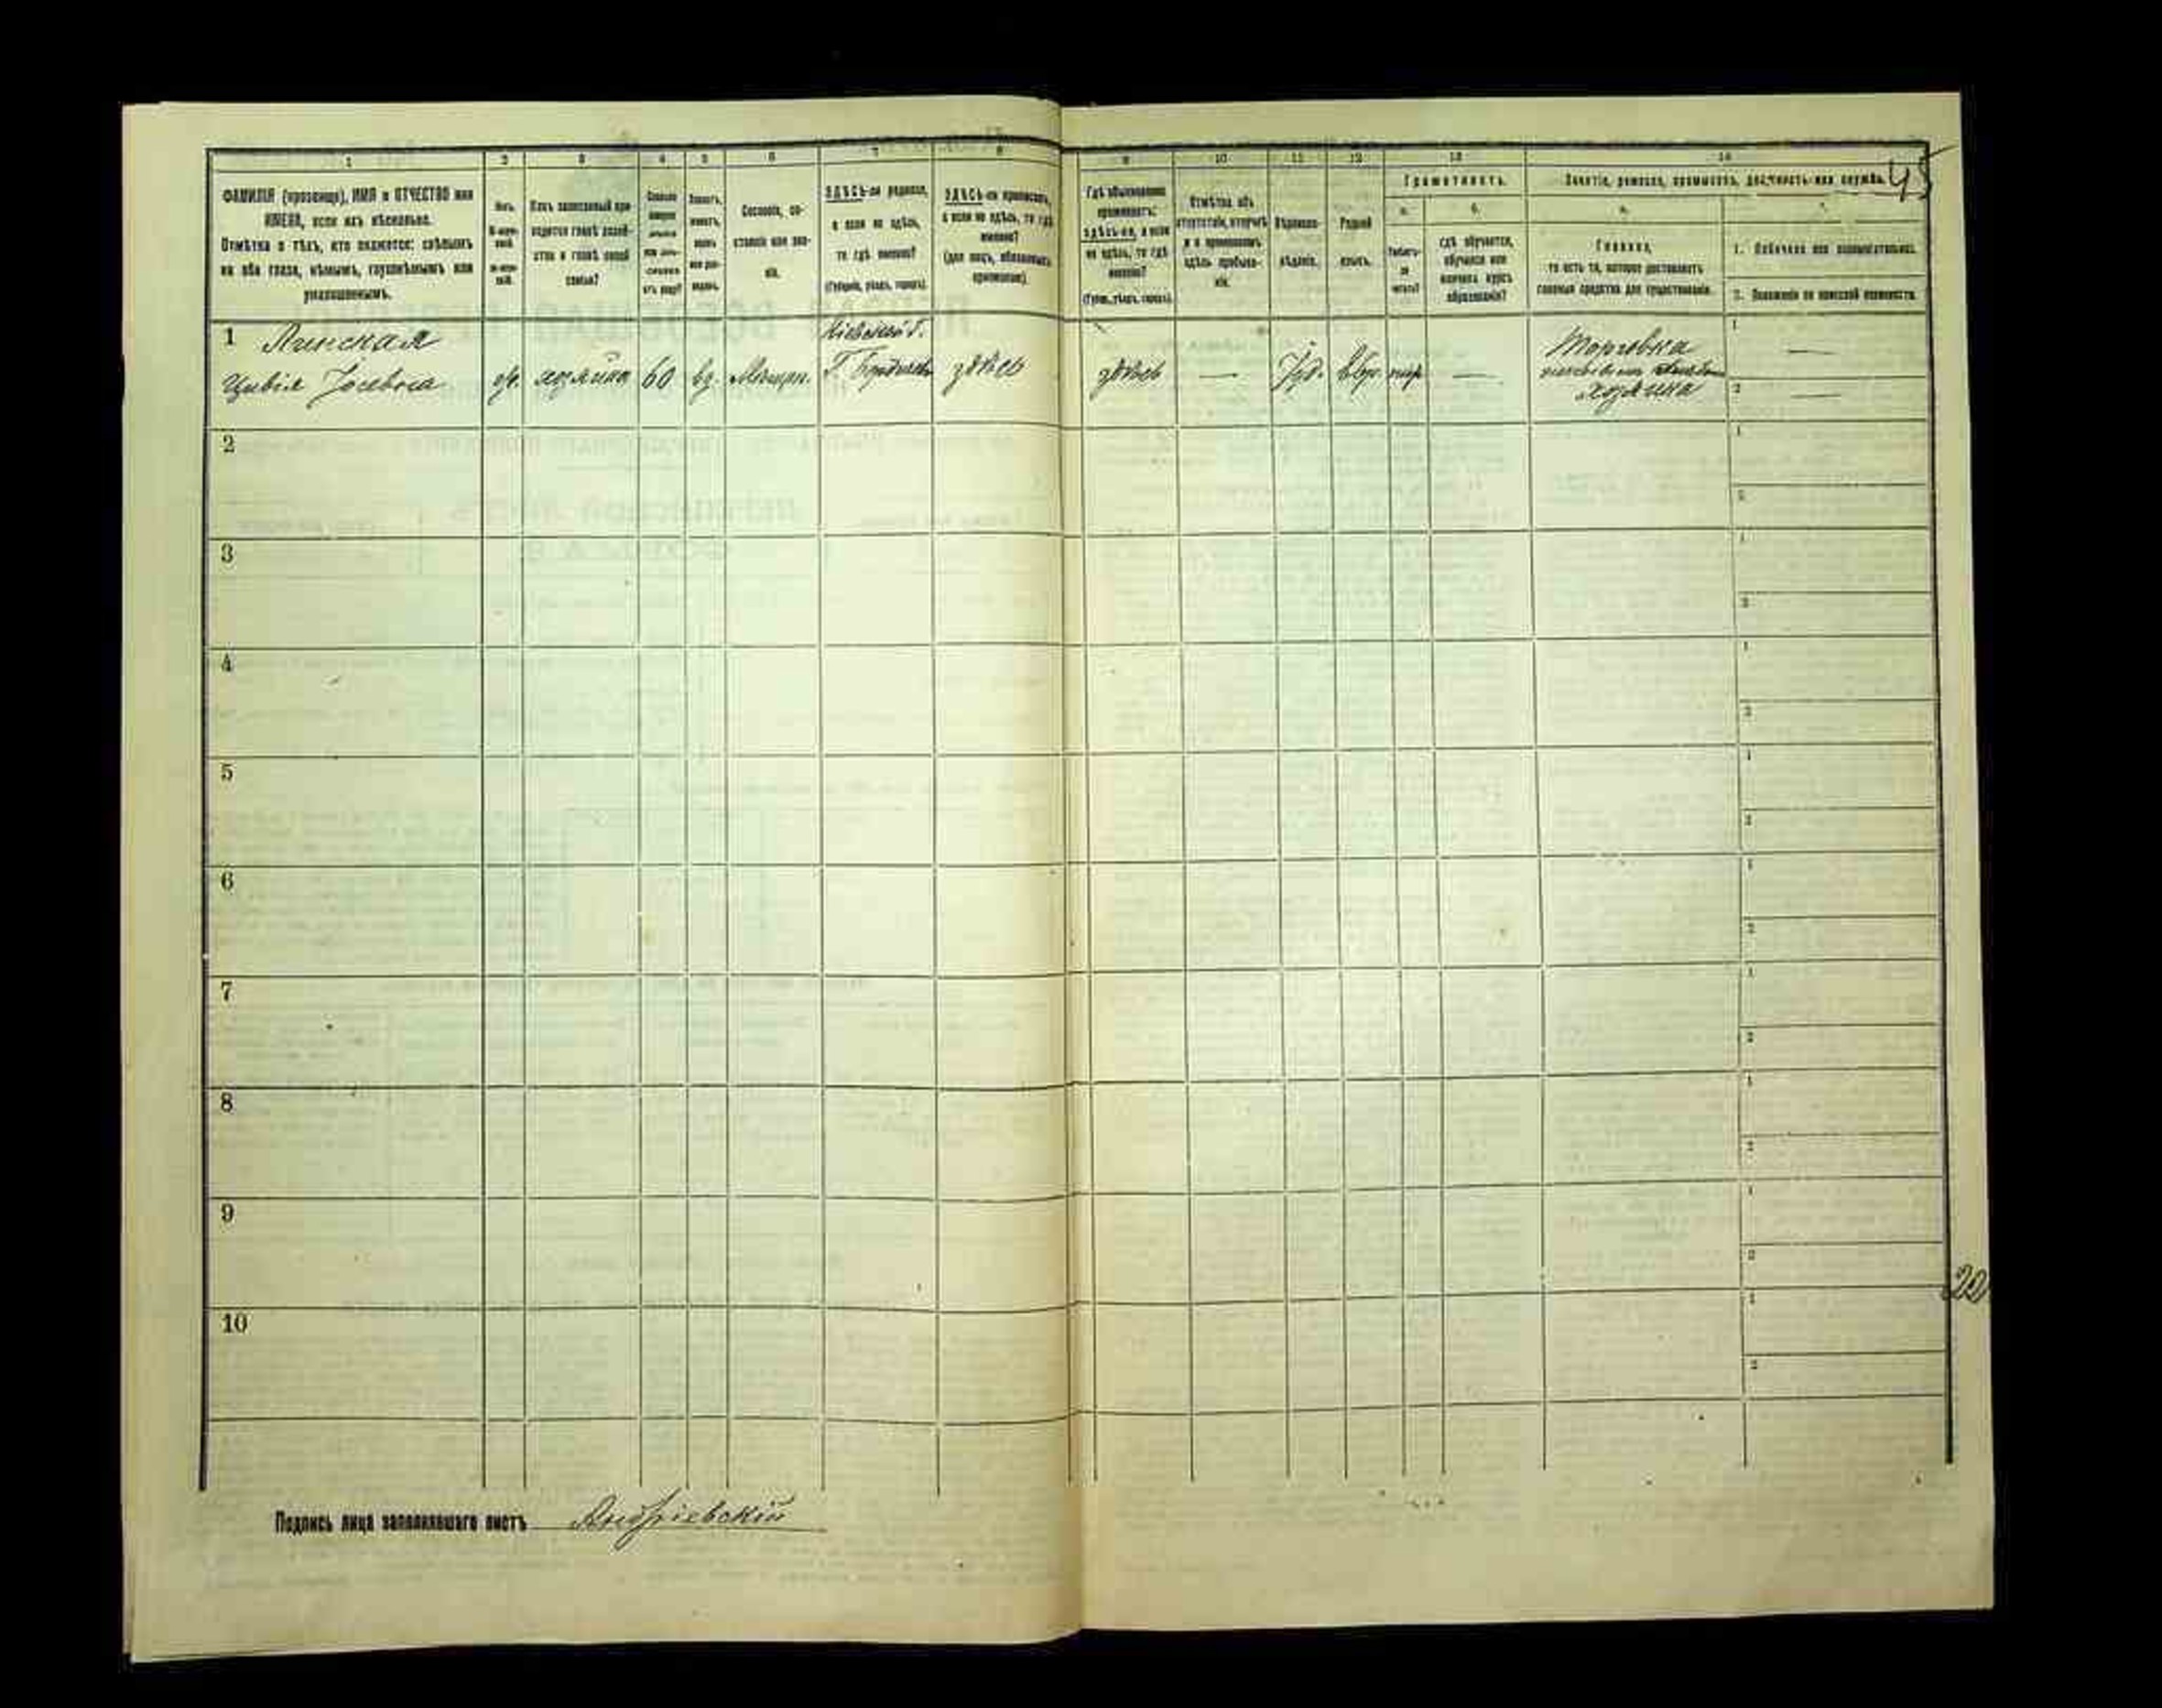 1 2 3 4 5 6 7 8 9 10 11 12 13 14
45
ФАМИЛІЯ (прозвище), ИМЯ и ОТЧЕСТВО или
ИМЕНА, если ихъ нѣсколько.
Отмѣтка о тѣхъ, кто окажется: слѣпымъ
на оба глаза, нѣмымъ, глухонѣмымъ или
умалишеннымъ.
Полъ.
Какъ записанный при-
ходится главѣ хозяй-
ства и главѣ своей
семьи?
Сословіе, со-
стояніе или зва-
ніе.
ЗДѢСЬ-ли родился,
а если не здѣсь,
то гдѣ именно?
(Губернія, уѣздъ, городъ).
ЗДѢСЬ-ли приписанъ,
а если не здѣсь, то гдѣ
именно?
(для лицъ, обязанныхъ
припискою).
Гдѣ обыкновенно
проживаетъ:
здѣсь-ли, а если
не здѣсь, то гдѣ
именно?
(Губерн., уѣздъ, городъ).
Отмѣтка объ
отсутствіи, отлучкѣ
и о временномъ
здѣсь пребыва-
ніи.
Вѣроиспо-
вѣданіе.
Родной
языкъ.
Грамотность.
а.
Умѣетъ-
ли
читать?
б.
гдѣ обучается,
обучался или
кончилъ курсъ
образованія?
Занятіе, ремесло, промыселъ, должность или служба.
а.
Главное,
то есть то, которое доставляетъ
главныя средства для существованія.
1. Побочное или вспомогательное.
2. Положеніе по воинской повинности.
1
Цивія
ж.
хозяйка
60
вд.
Мѣщан.
Кіевской г.
Г. Бердичевъ
здѣсь
здѣсь
—
Іуд.
Евр.
—
Торговка
хозяйка
1 —
2 —
2 1 2
3 1 2
4 1 2
5 1 2
6 1 2
7 1 2
8 1 2
9 1 2
10 1 2
22
Подпись лица заполнявшаго листъ Андріевскій